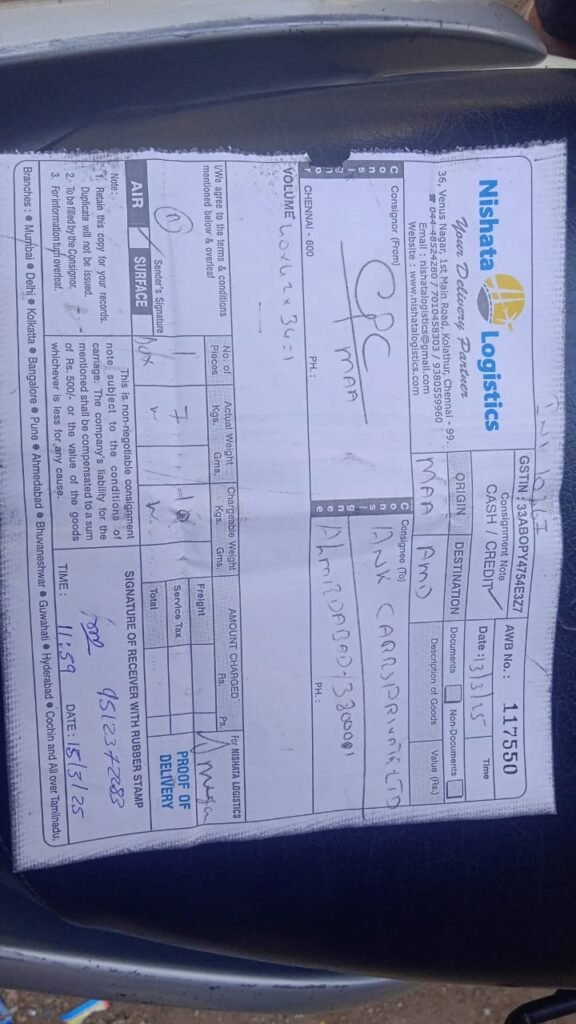 Nishata Logistics
Your Delivery Partner
36, Venus Nagar, 1st Main Road, Kolathur, Chennai - 99.
☎ 044-48524280 / 7010458303 / 9380559960
Email : nishatalogistics@gmail.com
Website : www.nishatalogistics.com
GSTIN : 33ABOPY4754E3Z7
Consignment Note
CASH / CREDIT
AWB No. : 117550
Date : 13/3/25
Time
ORIGIN
DESTINATION
MAA
AMD
Documents
Non-Documents
Description of Goods
Value (Rs.)
Consignor
Consignor (From)
CPC
MAA
CHENNAI - 600
PH. :
Consignee
Consignee (To)
ANK CARRS PRIVATE LTD
AHMEDABAD-380001
PH. :
VOLUME
I/We agree to the terms & conditions
mentioned below & overleaf
Sender's Signature
AIR
SURFACE
No. of Pieces
Actual Weight
Kgs. Gms.
Chargeable Weight
Kgs. Gms.
AMOUNT CHARGED
Rs. Ps.
1
7
Freight
Service Tax
Total
For NISHATA LOGISTICS
PROOF OF
DELIVERY
Note :
1. Retain this copy for your records.
Duplicate will not be issued.
2. To be filled by the Consignor.
3. For information turn overleaf.
This is non-negotiable consignment
note subject to the conditions of
carriage. The company's liability for the
mentioned shall be compensated to a sum
of Rs. 500/- or the value of the goods
whichever is less for any cause.
SIGNATURE OF RECEIVER WITH RUBBER STAMP
9512342283
TIME : 11:59
DATE : 15/3/25
Branches : ● Mumbai ● Delhi ● Kolkatta ● Bangalore ● Pune ● Ahmedabad ● Bhuvaneshwar ● Guwahati ● Hyderabad ● Cochin and All over Tamilnadu.